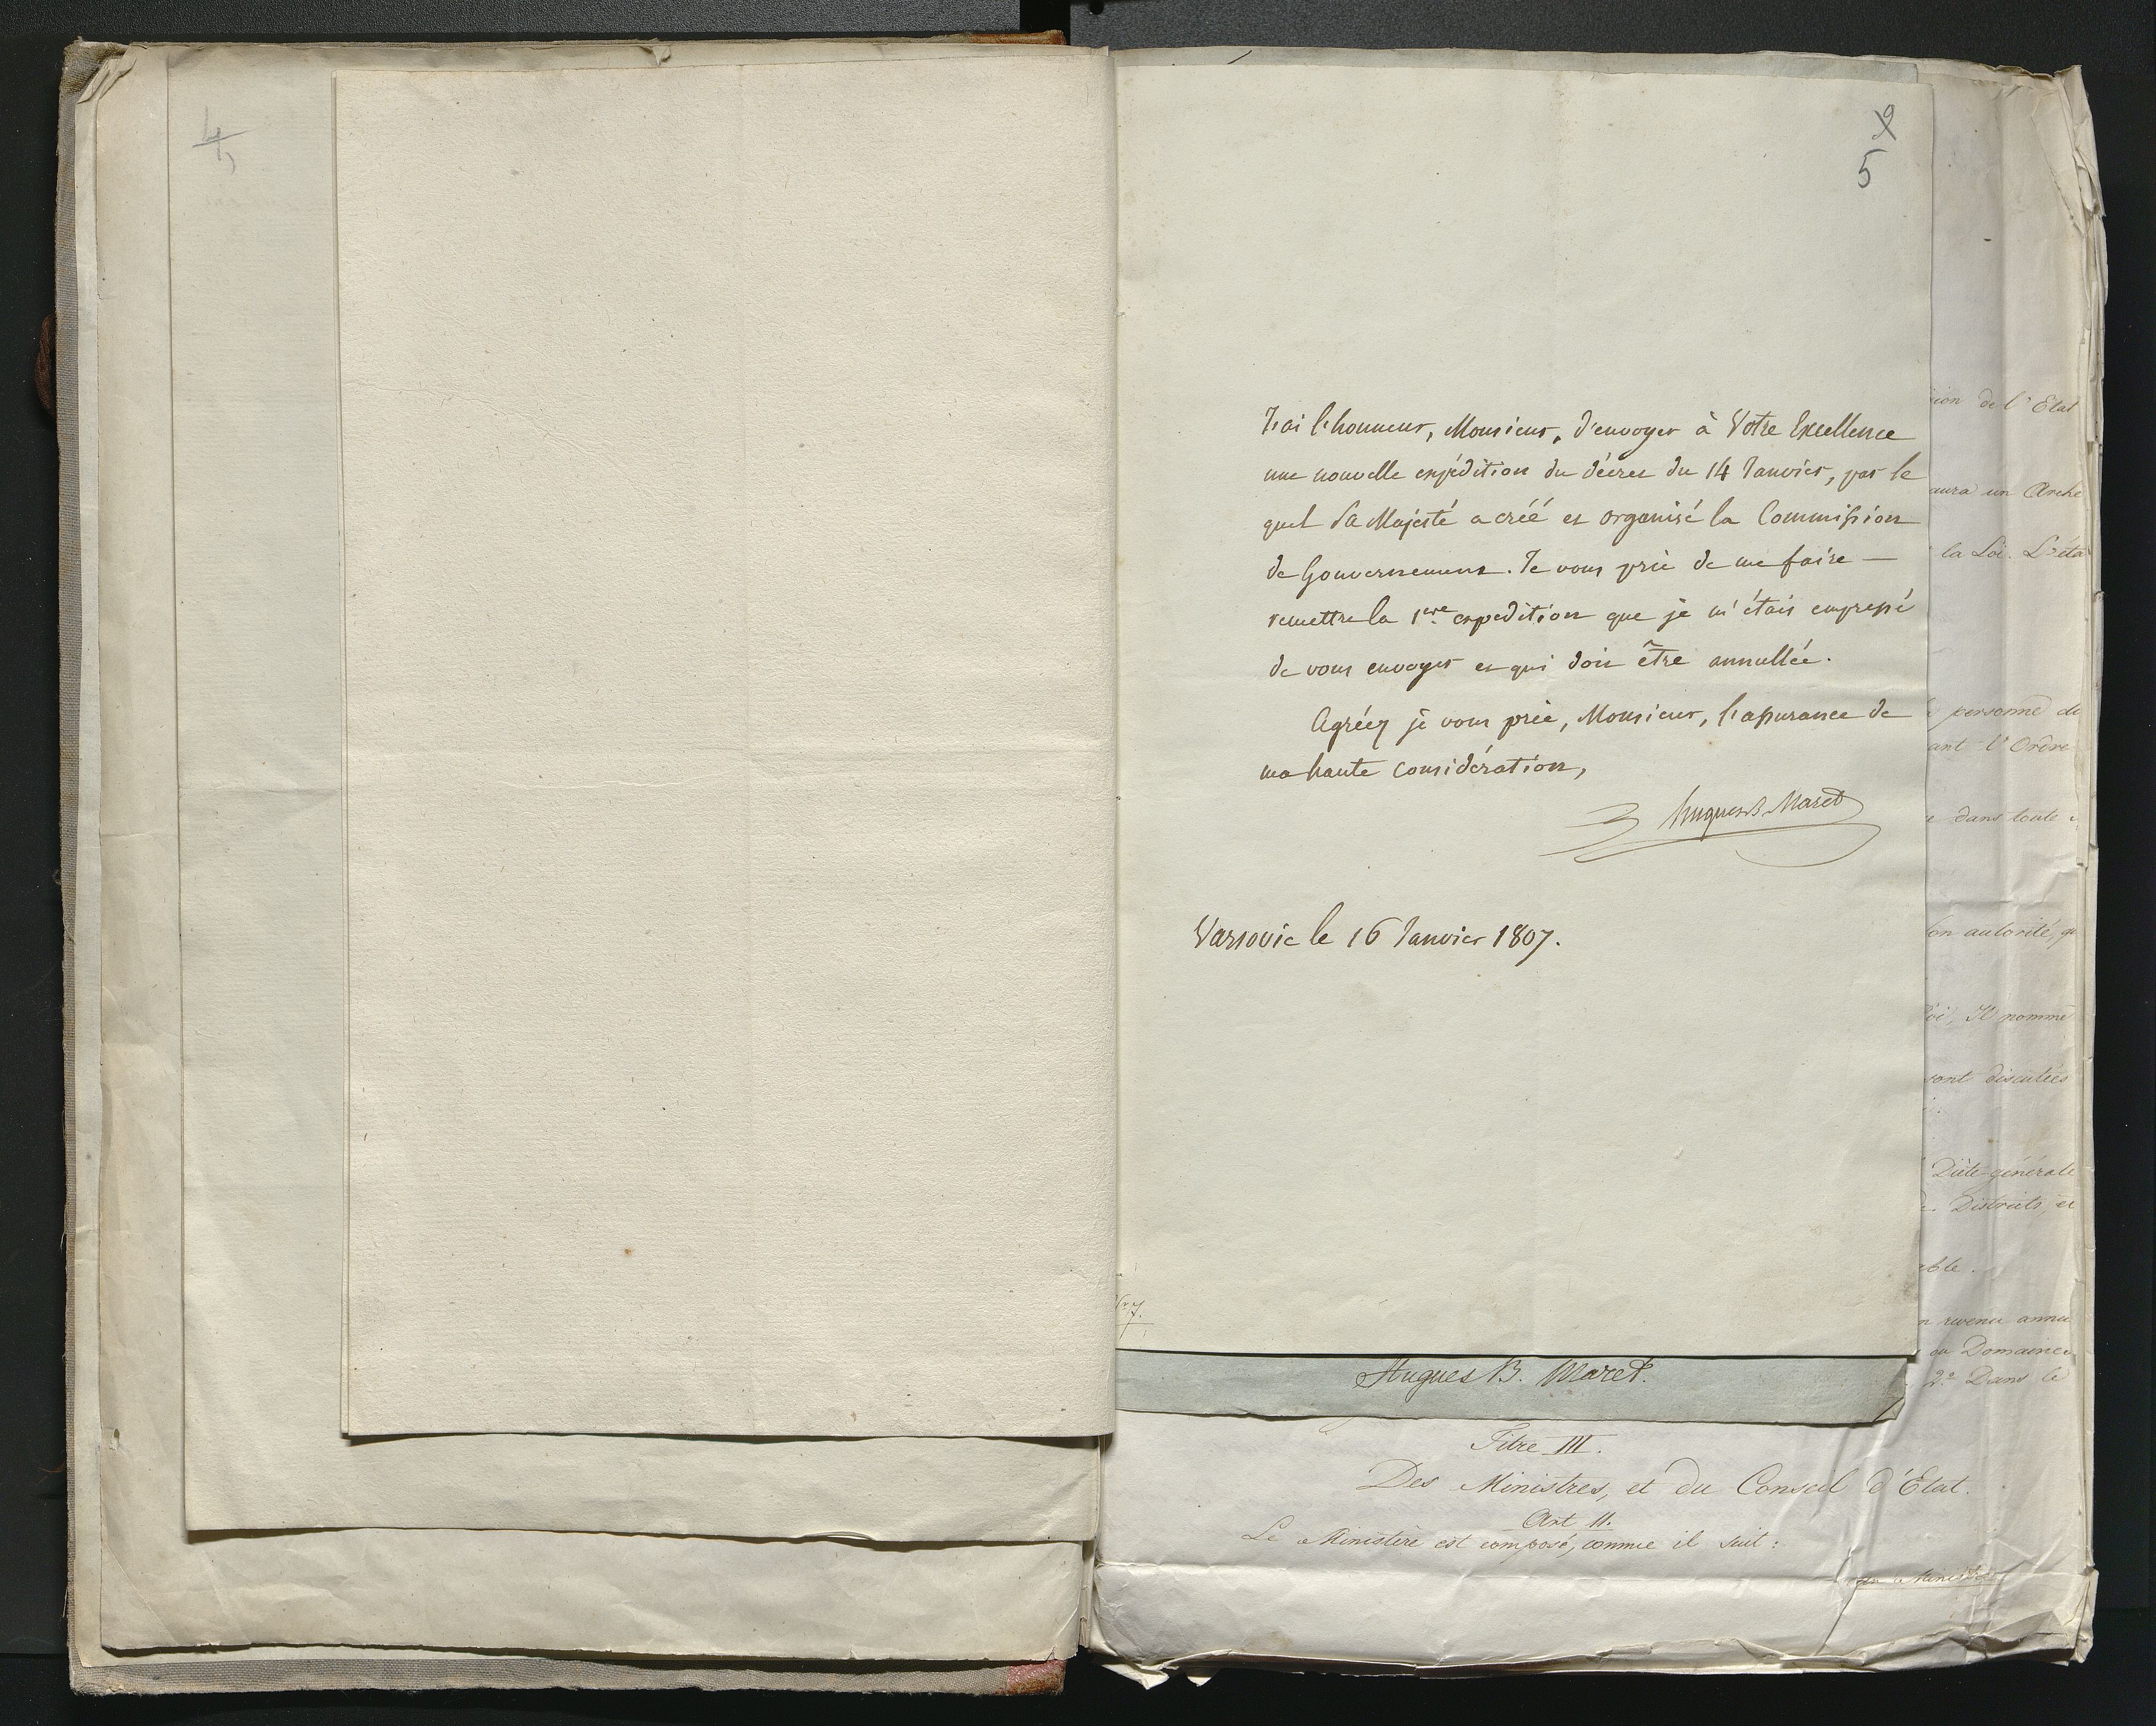 4
5
9
5
J'ai l'honneur, Monsieur, d'envoyer à Votre Excellence
une nouvelle expédition du décret du 14 Janvier, par le
quel Sa Majesté a créé et organisé la Commission
de Gouvernement. Je vous prie de me faire —
remettre la 1ere expedition que je m'étais empressé
de vous envoyer et qui doit être annullée.
Agréez je vous prie, Monsieur, l'assurance de
ma haute considération,
Hugues B. Maret
Varsovie le 16 Janvier 1807.
Hugues B. Maret.
Titre III.
Des Ministres, et du Conseil d'État.
Art 11.
Le Ministère est composé, comme il suit:
de l'Etat
aura un Arche
la Loi. L'éta
personne de
ant l'Ordre
dans toute
son autorité, qu
Roi, Il nomme
sont discutées
Diète-générale
Districts, et
able.
revenu annu
ou Domaines
2° Dans le